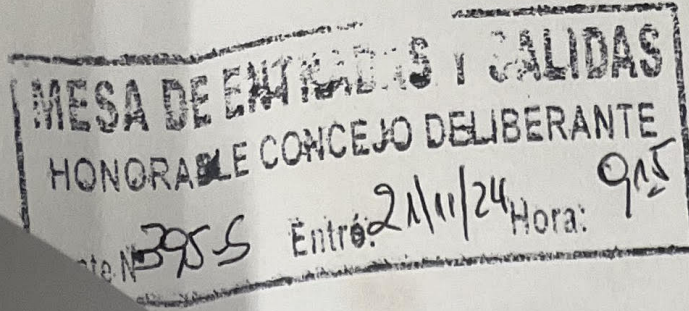 MESA DE ENTRADAS Y SALIDAS
HONORABLE CONCEJO DELIBERANTE
N 395-S Entró: 21/11/24 Hora: 915